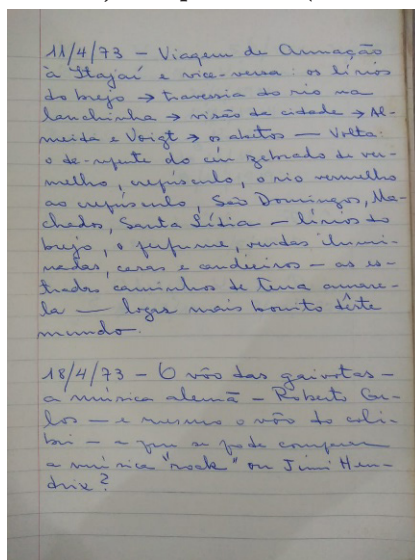 11/4/73 – Viagem de Armação
à Itajaí e vice-versa: os lírios
do brejo → travessia do rio na
lanchinha → visão da cidade → Al-
meida e Voigt → os abetos — Volta:
o de-repente do céu zebrado de ver-
melho, crepúsculo, o rio vermelho
ao crepúsculo, São Domingos, Ma-
chados, Santa Lídia – lírios do
brejo, o perfume, vendas ilumi-
nadas, casas e candieiros – as es-
tradas caminhos de terra amare-
la — lugar mais bonito dêste
mundo.
18/4/73 – O vôo das gaivotas –
a música alemã – Roberto Car-
los – e mesmo o vôo do coli-
bri – a que se pode comparar
a música "rock" ou Jimi Hen-
drix?